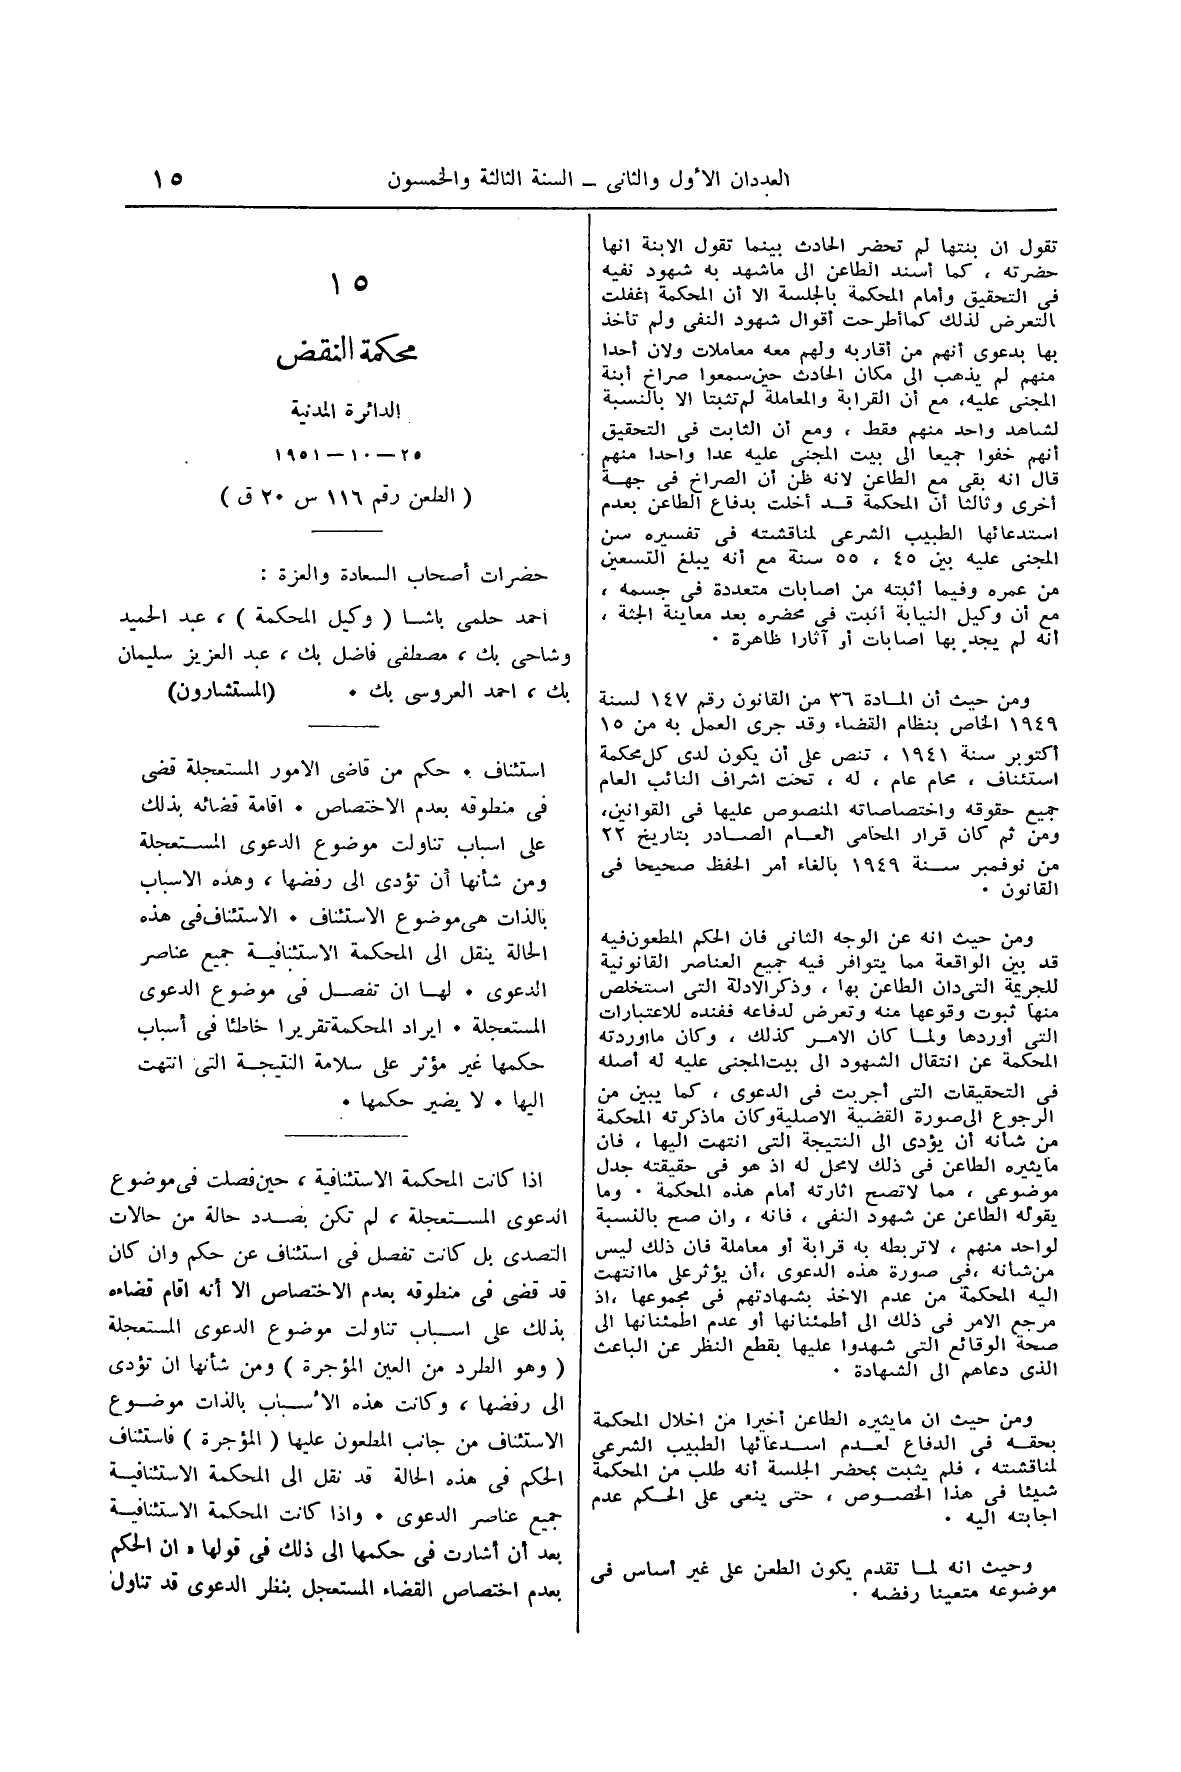 العددان الأول والثانى – السنة الثالثة والخمسون
١٥
تقول ان بنتها لم تحضر الحادث بينما تقول الابنة انها
حضرته ، كما أسند الطاعن الى ماشهد به شهود نفيه
فى التحقيق وأمام المحكمة بالجلسة الا أن المحكمة اغفلت
التعرض لذلك كماأطرحت أقوال شهود النفى ولم تأخذ
بها بدعوى أنهم من أقاربه ولهم معه معاملات ولان أحدا
منهم لم يذهب الى مكان الحادث حين سمعوا صراخ أبنة
المجنى عليه، مع أن القرابة والمعاملة لم تثبتا الا بالنسبة
لشاهد واحد منهم فقط ، ومع أن الثابت فى التحقيق
أنهم خفوا جميعا الى بيت المجنى عليه عدا واحدا منهم
قال انه بقى مع الطاعن لانه ظن أن الصراخ فى جهة
أخرى وثالثا أن المحكمة قد أخلت بدفاع الطاعن بعدم
استدعائها الطبيب الشرعى لمناقشته فى تفسيره سن
المجنى عليه بين ٤٥ ، ٥٥ سنة مع أنه يبلغ التسعين
من عمره وفيما أثبته من اصابات متعددة فى جسمه ،
مع أن وكيل النيابة أثبت فى محضره بعد معاينة الجثة ،
أنه لم يجد بها اصابات أو آثارا ظاهرة ٠
ومن حيث أن المادة ٣٦ من القانون رقم ١٤٧ لسنة
١٩٤٩ الخاص بنظام القضاء وقد جرى العمل به من ١٥
أكتوبر سنة ١٩٤١ ، تنص على أن يكون لدى كل محكمة
استئناف ، محام عام ، له ، تحت اشراف النائب العام
جميع حقوقه واختصاصاته المنصوص عليها فى القوانين،
ومن ثم كان قرار المحامى العام الصادر بتاريخ ٢٢
من نوفمبر سنة ١٩٤٩ بالغاء أمر الحفظ صحيحا فى
القانون ٠
ومن حيث انه عن الوجه الثانى فان الحكم المطعون فيه
قد بين الواقعة مما يتوافر فيه جميع العناصر القانونية
للجريمة التى دان الطاعن بها ، وذكر الادلة التى استخلص
منها ثبوت وقوعها منه وتعرض لدفاعه ففنده للاعتبارات
التى أوردها ولما كان الامر كذلك ، وكان مااوردته
المحكمة عن انتقال الشهود الى بيت المجنى عليه له أصله
فى التحقيقات التى أجريت فى الدعوى ، كما يبين من
الرجوع الى صورة القضية الاصلية وكان ماذكرته المحكمة
من شأنه أن يؤدى الى النتيجة التى انتهت اليها ، فان
مايثيره الطاعن فى ذلك لامحل له اذ هو فى حقيقته جدل
موضوعى ، مما لاتصح اثارته أمام هذه المحكمة ٠ وما
يقوله الطاعن عن شهود النفى ، فانه ، وان صح بالنسبة
لواحد منهم ، لاتربطه به قرابة أو معاملة فان ذلك ليس
من شأنه ،فى صورة هذه الدعوى ،أن يؤثر على ماانتهت
اليه المحكمة من عدم الاخذ بشهادتهم فى مجموعها ،اذ
مرجع الامر فى ذلك الى أطمئنانها أو عدم اطمئنانها الى
صحة الوقائع التى شهدوا عليها بقطع النظر عن الباعث
الذى دعاهم الى الشهادة ٠
ومن حيث ان مايثيره الطاعن أخيرا من اخلال المحكمة
بحقه فى الدفاع لعدم استدعائها الطبيب الشرعى
لمناقشته ، فلم يثبت بمحضر الجلسة أنه طلب من المحكمة
شيئا فى هذا الخصوص ، حتى ينعى على الحكم عدم
اجابته اليه ٠
وحيث انه لما تقدم يكون الطعن على غير أساس فى
موضوعه متعينا رفضه ٠
١٥
محكمة النقض
الدائرة المدنية
٢٥ – ١٠ – ١٩٥١
( الطعن رقم ١١٦ س ٢٠ ق )
حضرات أصحاب السعادة والعزة :
احمد حلمى باشا ( وكيل المحكمة ) ، عبد الحميد
وشاحى بك ، مصطفى فاضل بك ، عبد العزيز سليمان
بك ، احمد العروسى بك ٠ (المستشارون)
استئناف ٠ حكم من قاضى الامور المستعجلة قضى
فى منطوقه بعدم الاختصاص ٠ اقامة قضائه بذلك
على اسباب تناولت موضوع الدعوى المستعجلة
ومن شأنها أن تؤدى الى رفضها ، وهذه الاسباب
بالذات هى موضوع الاستئناف ٠ الاستئناف فى هذه
الحالة ينقل الى المحكمة الاستئنافية جميع عناصر
الدعوى ٠ لها ان تفصل فى موضوع الدعوى
المستعجلة ٠ ايراد المحكمة تقريرا خاطئا فى أسباب
حكمها غير مؤثر على سلامة النتيجة التى انتهت
اليها ٠ لا يضير حكمها ٠
اذا كانت المحكمة الاستئنافية ، حين فصلت فى موضوع
الدعوى المستعجلة ، لم تكن بصدد حالة من حالات
التصدى بل كانت تفصل فى استئناف عن حكم وان كان
قد قضى فى منطوقه بعدم الاختصاص الا أنه اقام قضاءه
بذلك على اسباب تناولت موضوع الدعوى المستعجلة
( وهو الطرد من العين المؤجرة ) ومن شأنها ان تؤدى
الى رفضها ، وكانت هذه الأسباب بالذات موضوع
الاستئناف من جانب المطعون عليها ( المؤجرة ) فاستئناف
الحكم فى هذه الحالة قد نقل الى المحكمة الاستئنافية
جميع عناصر الدعوى ٠ واذا كانت المحكمة الاستئنافية
بعد أن أشارت فى حكمها الى ذلك فى قولها « ان الحكم
بعدم اختصاص القضاء المستعجل بنظر الدعوى قد تناول